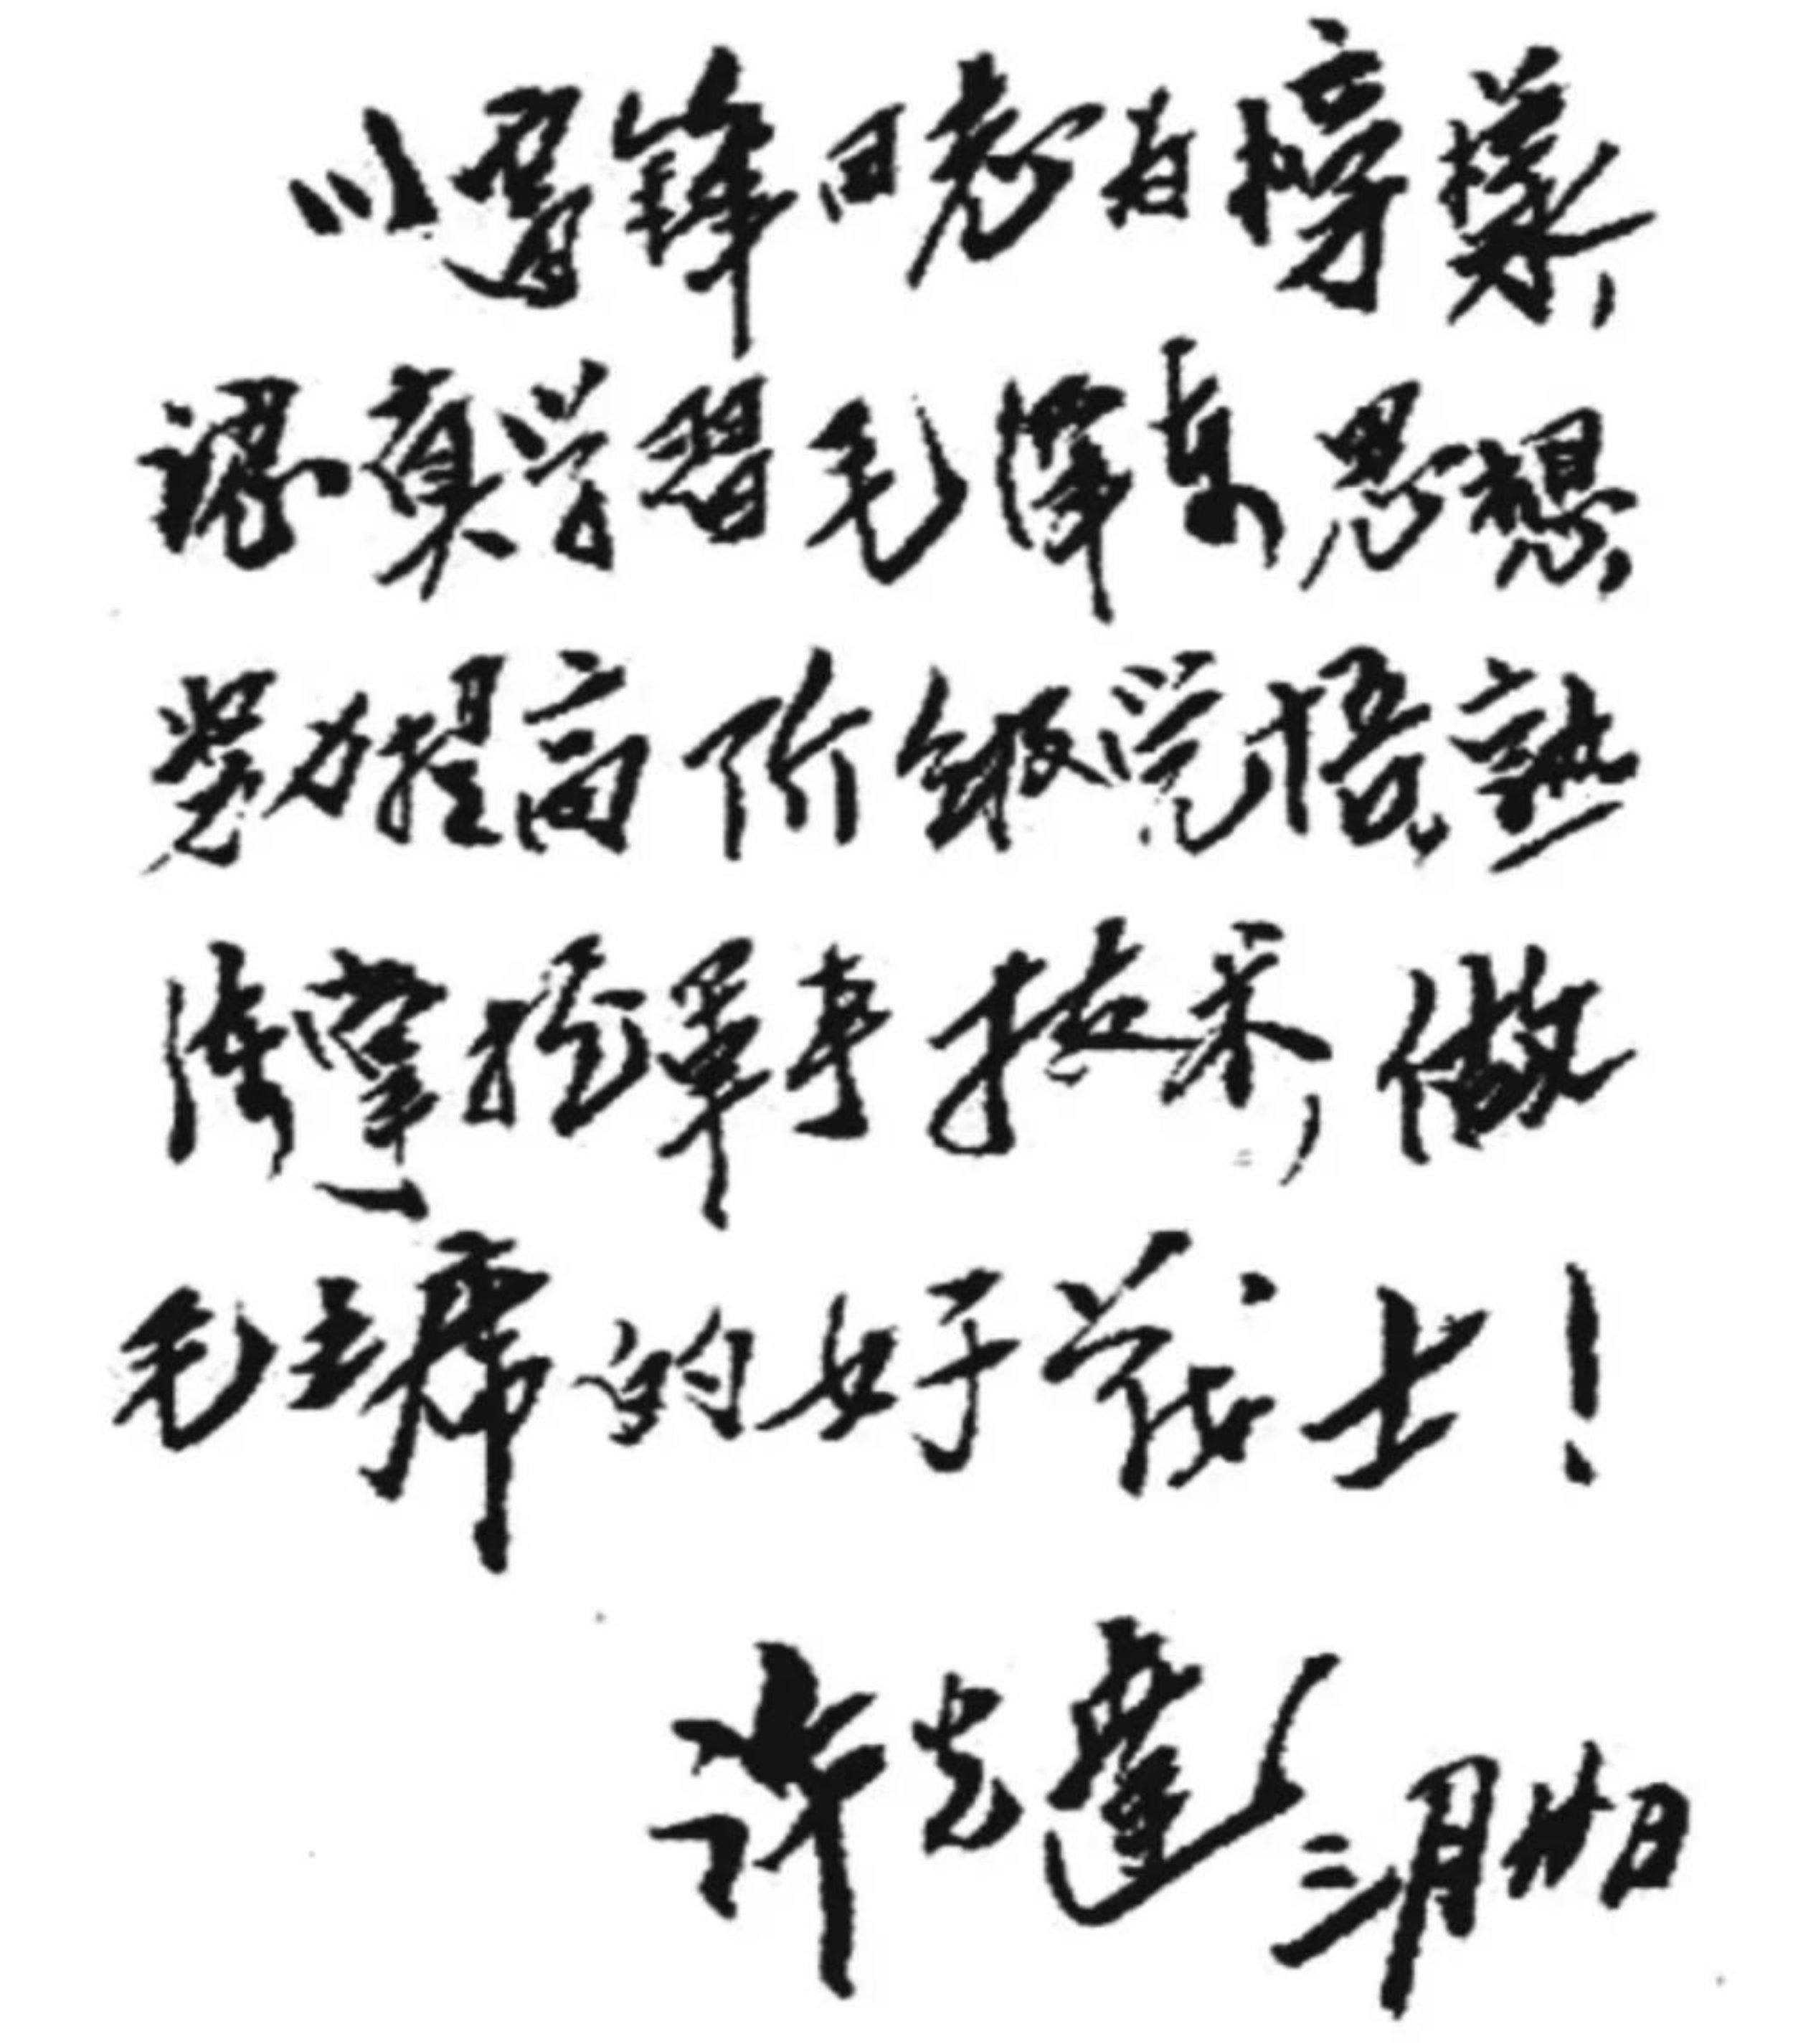 以雷锋同志为榜样,
认真学習毛澤东思想
努力提高阶级觉悟,熟
练掌握軍事技术,做
毛主席的好战士!
许光達 三月廿日